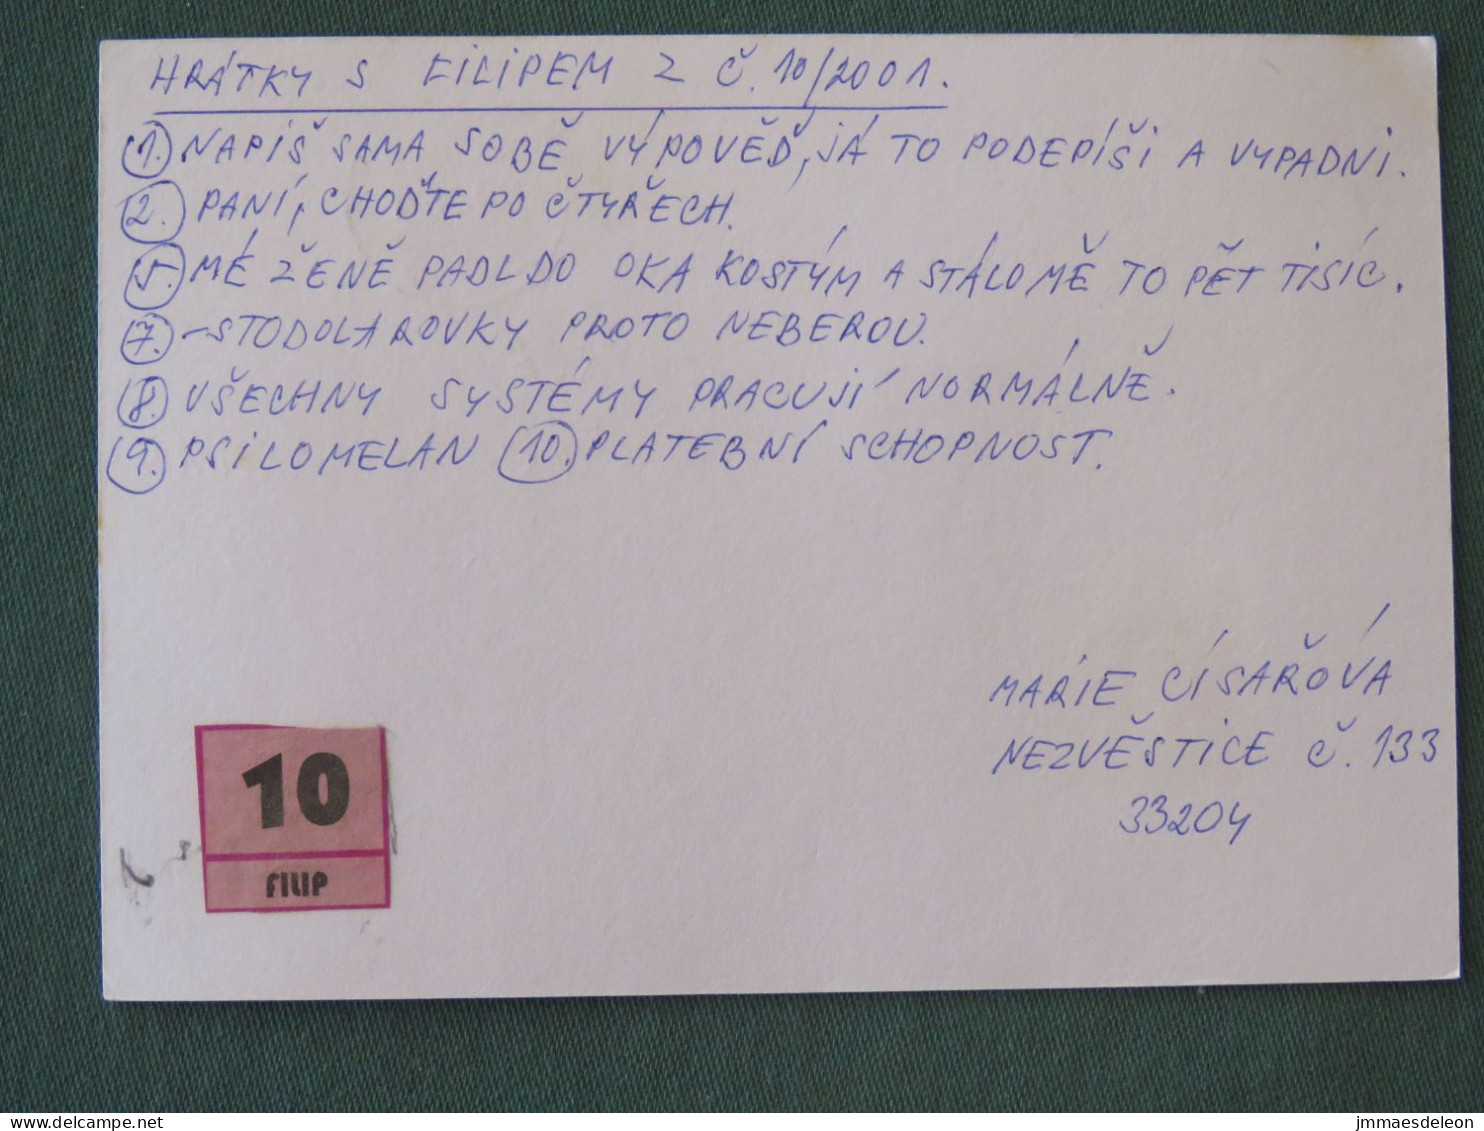 HRÁTKY S FILIPEM Z Č. 10/2001.
1. NAPIŠ SAMA SOBĚ VÝPOVĚĎ, JÁ TO PODEPÍŠI A VYPADNI.
2. PANÍ, CHOĎTE PO ČTYŘECH.
5. MÉ ŽENĚ PADL DO OKA KOSTÝM A STÁLO MĚ TO PĚT TISÍC.
7. -STODOLAROVKY PROTO NEBEROU.
8. VŠECHNY SYSTÉMY PRACUJÍ NORMÁLNĚ.
9. PSILOMELAN 10. PLATEBNÍ SCHOPNOST.
MARIE CÍSAŘOVÁ
NEZVĚSTICE Č. 133
33204
10
FILIP
delcampe.net
jmmaesdeleon